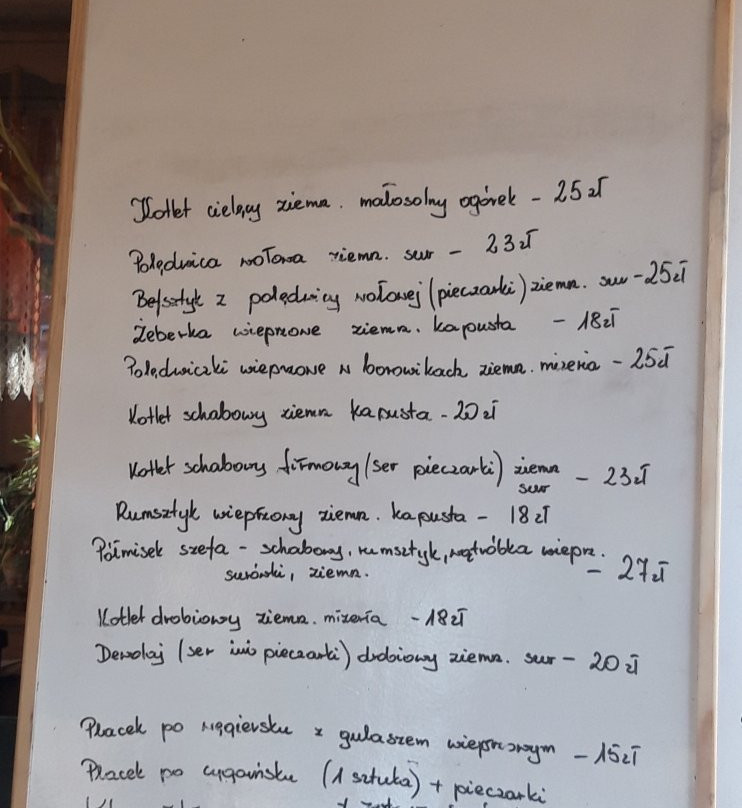 Kotlet cielęcy ziemn. małosolny ogórek - 25 zł
Polędwica wołowa ziemn. sur - 23 zł
Befsztyk z polędwicy wołowej (pieczarki) ziemn. sur - 25 zł
Żeberka wieprzowe ziemn. kapusta - 18 zł
Polędwiczki wieprzowe w borowikach ziemn. mizeria - 25 zł
Kotlet schabowy ziemn kapusta - 20 zł
Kotlet schabowy firmowy (ser pieczarki) ziemn - 23 zł
sur
Rumsztyk wieprzowy ziemn. kapusta - 18 zł
Półmisek szefa - schabowy, rumsztyk, wątróbka wiepr.
surówki, ziemn. - 27 zł
Kotlet drobiowy ziemn. mizeria - 18 zł
Dewolaj (ser pieczarki) drobiowy ziemn. sur - 20 zł
Placek po węgiersku z gulaszem wieprzowym - 15 zł
Placek po cygańsku (1 sztuka) + pieczarki